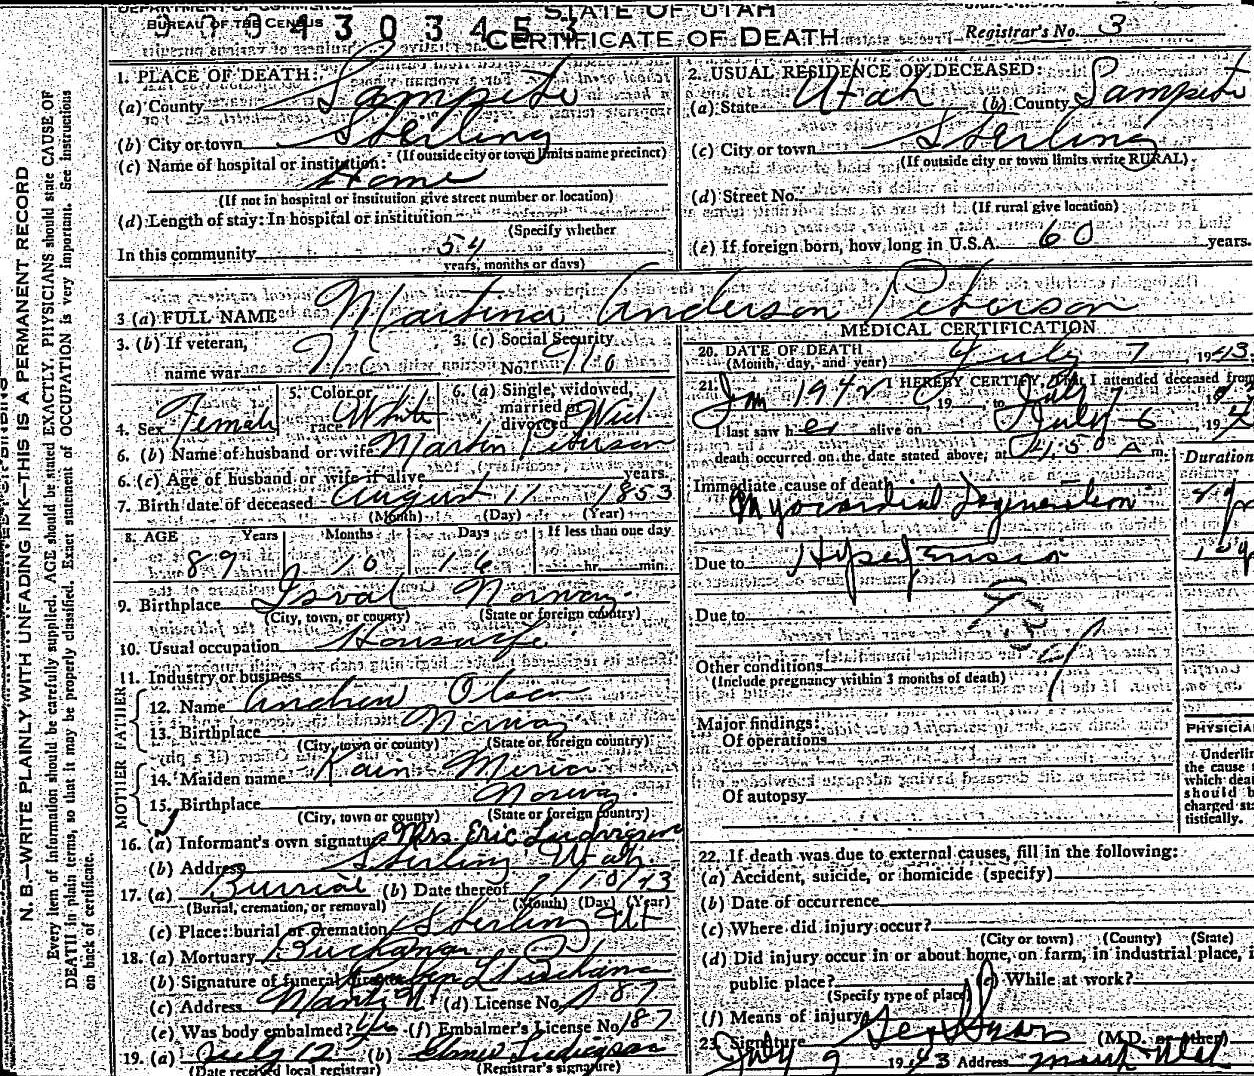 DEPARTMENT OF COMMERCE
BUREAU OF THE CENSUS
STATE OF UTAH
CERTIFICATE OF DEATH
Registrar's No. 3
N. B.—WRITE PLAINLY WITH UNFADING INK—THIS IS A PERMANENT RECORD
Every item of information should be carefully supplied. AGE should be stated EXACTLY. PHYSICIANS should state CAUSE OF
DEATH in plain terms, so that it may be properly classified. Exact statement of OCCUPATION is very important. See instructions
on back of certificate.
1. PLACE OF DEATH:
(a) County Sampete
(b) City or town Sterling
(If outside city or town limits name precinct)
(c) Name of hospital or institution:
Home
(If not in hospital or institution give street number or location)
(d) Length of stay: In hospital or institution
(Specify whether
In this community 54
years, months or days)
2. USUAL RESIDENCE OF DECEASED:
(a) State Utah (b) County Sampete
(c) City or town Sterling
(If outside city or town limits write RURAL)
(d) Street No.
(If rural give location)
(e) If foreign born, how long in U.S.A. 60 years.
3 (a) FULL NAME Martina Anderson Peterson
3. (b) If veteran, name war No
3. (c) Social Security No. No
4. Sex Female
5. Color or race White
6. (a) Single, widowed, married or divorced Wid
6. (b) Name of husband or wife Martin Peterson
6. (c) Age of husband or wife if alive years.
7. Birth date of deceased August 11 1853
(Month) (Day) (Year)
8. AGE Years Months Days If less than one day
89 10 16 hr. min.
9. Birthplace Norway
(City, town, or county) (State or foreign country)
10. Usual occupation Housewife
11. Industry or business
FATHER
12. Name Andrew Olsen
13. Birthplace Norway
(City, town or county) (State or foreign country)
MOTHER
14. Maiden name
15. Birthplace Norway
(City, town or county) (State or foreign country)
16. (a) Informant's own signature Mrs. Eric Ludvigson
(b) Address Sterling Utah.
17. (a) Burrial (b) Date thereof 7/10/43
(Burial, cremation, or removal) (Month) (Day) (Year)
(c) Place: burial or cremation Sterling Ut
18. (a) Mortuary Buchanan
(b) Signature of funeral director
(c) Address Manti Ut (d) License No. 187
(e) Was body embalmed? Yes (f) Embalmer's License No. 187
19. (a) July 12 (b)
(Date received local registrar) (Registrar's signature)
MEDICAL CERTIFICATION
20. DATE OF DEATH July 7, 1943.
(Month, day, and year)
21. I HEREBY CERTIFY, That I attended deceased from
Jan 1942, 19 to July 7, 19
I last saw her alive on July 6, 19
death occurred on the date stated above, at 4:50 A m.
Duration
Immediate cause of death
Myocardial Degeneration
Due to Hypertension
Due to
Other conditions
(Include pregnancy within 3 months of death)
Major findings:
Of operations
Of autopsy
PHYSICIAN
Underline
the cause
which dea
should b
charged sta
tistically.
22. If death was due to external causes, fill in the following:
(a) Accident, suicide, or homicide (specify)
(b) Date of occurrence
(c) Where did injury occur?
(City or town) (County) (State)
(d) Did injury occur in or about home, on farm, in industrial place, i
public place? (e) While at work?
(Specify type of place)
(f) Means of injury
23. Signature (M.D. or other)
July 9 1943 Address